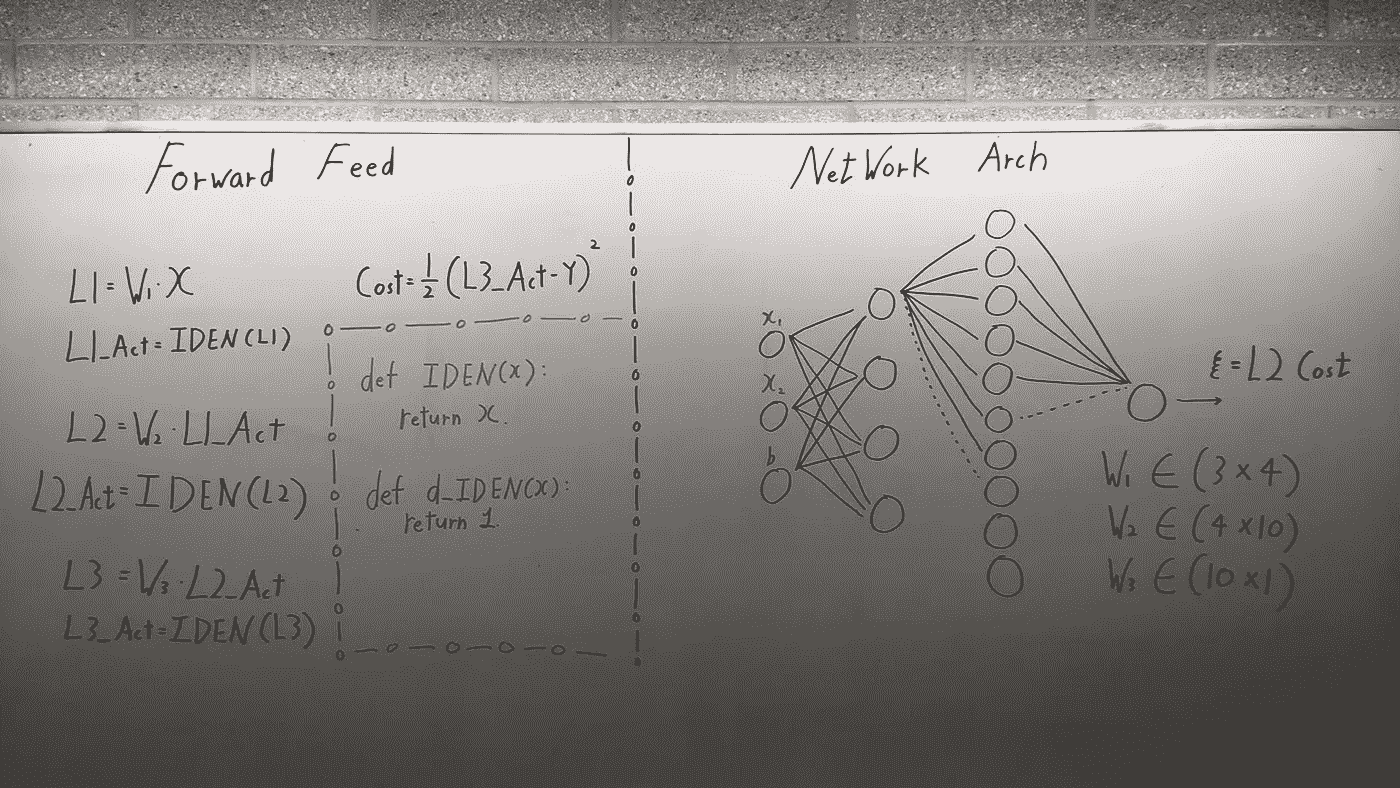 Forward Feed
L1 = W₁·X
L1_Act = IDEN(L1)
L2 = W₂·L1_Act
L2_Act = IDEN(L2)
L3 = W₃·L2_Act
L3_Act = IDEN(L3)
Cost = 1/2 (L3_Act - Y)²
def IDEN(x):
return x.
def d_IDEN(x):
return 1.
NetWork Arch
x₁
x₂
b
ξ = L2 Cost
W₁ ∈ (3 x 4)
W₂ ∈ (4 x 10)
W₃ ∈ (10 x 1)